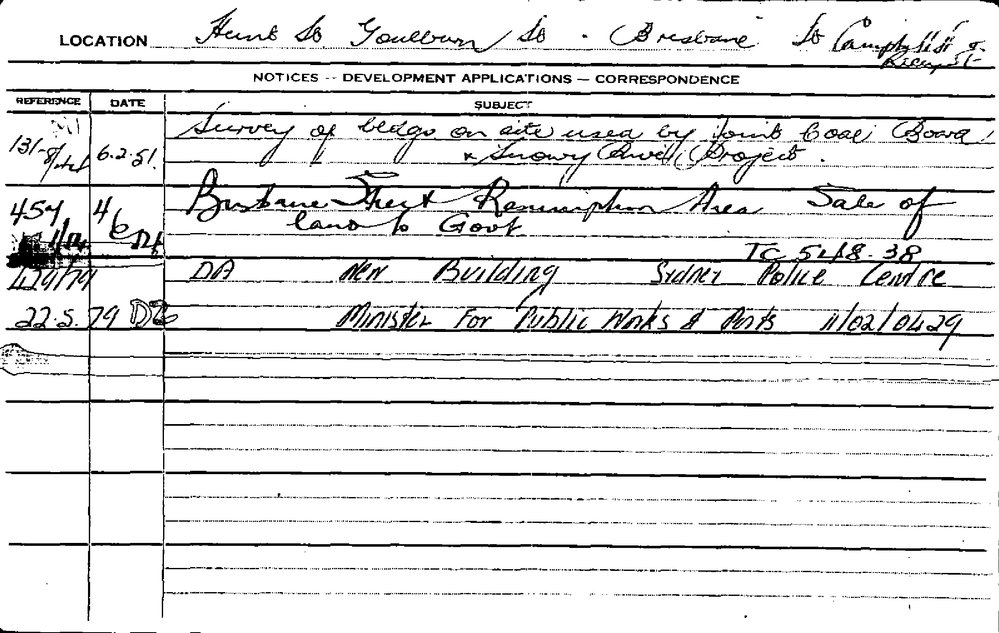 LOCATION Hunt St Goulburn St - Brisbane St Campbell St &
NOTICES -- DEVELOPMENT APPLICATIONS — CORRESPONDENCE
REFERENCE DATE SUBJECT
6.2.51. Survey of bldgs on site used by Joint Coal Board
& Snowy River Project.
457 4/6 Brisbane Street Resumption Area Sale of
land to Govt
TC 548-38
429/79 DA New Building Sidney Police Centre
22.5.79 Minister For Public Works & Ports 11/02/0429